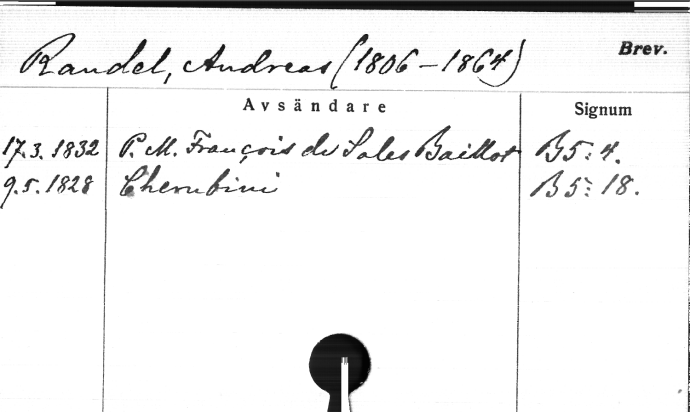 Randel, Andreas (1806–1864) Brev.
Avsändare Signum
17.3.1832 P. M. François de Sales Baillot B5:4.
9.5.1828 Cherubini B5:18.